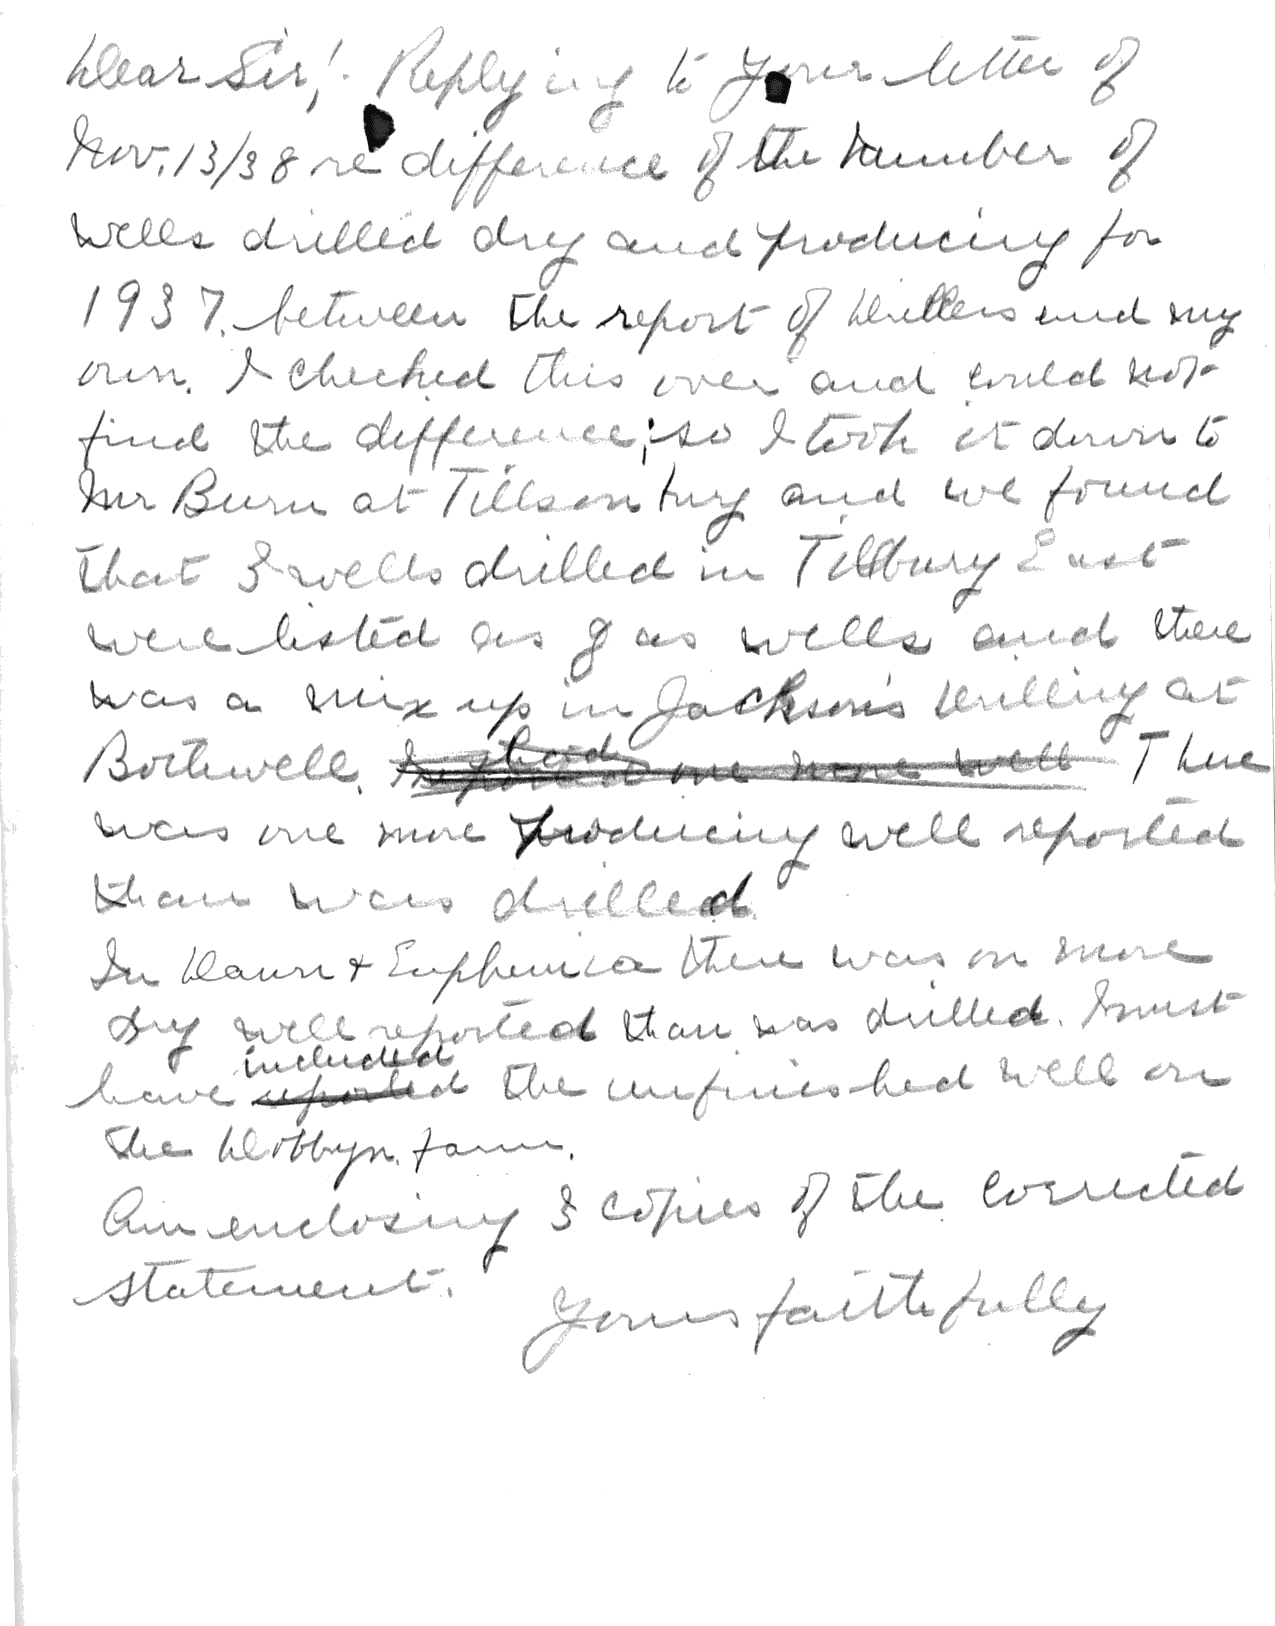 Dear Sir! Replying to your letter of
Nov. 13/38 re difference of the number of
wells drilled dry and producing for
1937. between the report of Drillers and my
own. I checked this over and could not
find the difference; so I took it down to
Mr Burn at Tillsonburg and we found
that 3 wells drilled in Tilbury East
were listed as gas wells and there
was a mix up in Jackson's drilling at
Bothwell. one more well There
was one more producing well reported
than was drilled.
In Dawn & Euphemia there was on more
dry well reported than was drilled. I must
included
have reported the unfinished well on
the Dobbyn farm.
Am enclosing 3 copies of the corrected
statement.
Yours faithfully